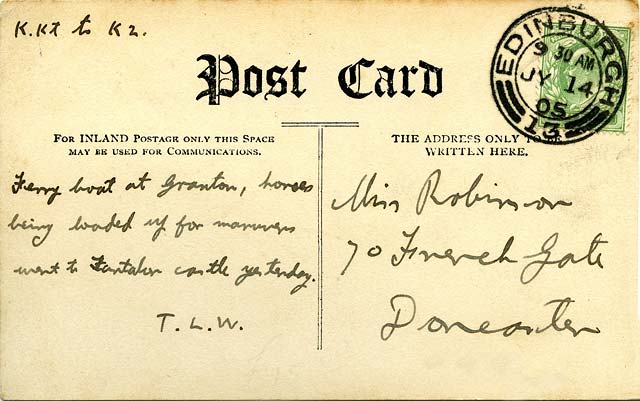 K.K7 to K2.
Post Card
EDINBURGH
9 30 AM
JY 14
05
13
FOR INLAND POSTAGE ONLY THIS SPACE
MAY BE USED FOR COMMUNICATIONS.
THE ADDRESS ONLY TO BE
WRITTEN HERE.
Ferry boat at Granton, horses
being loaded up for manuvers
went to Tantalon castle yesterday.
T.L.W.
Miss Robinson
70 French Gate
Doncaster